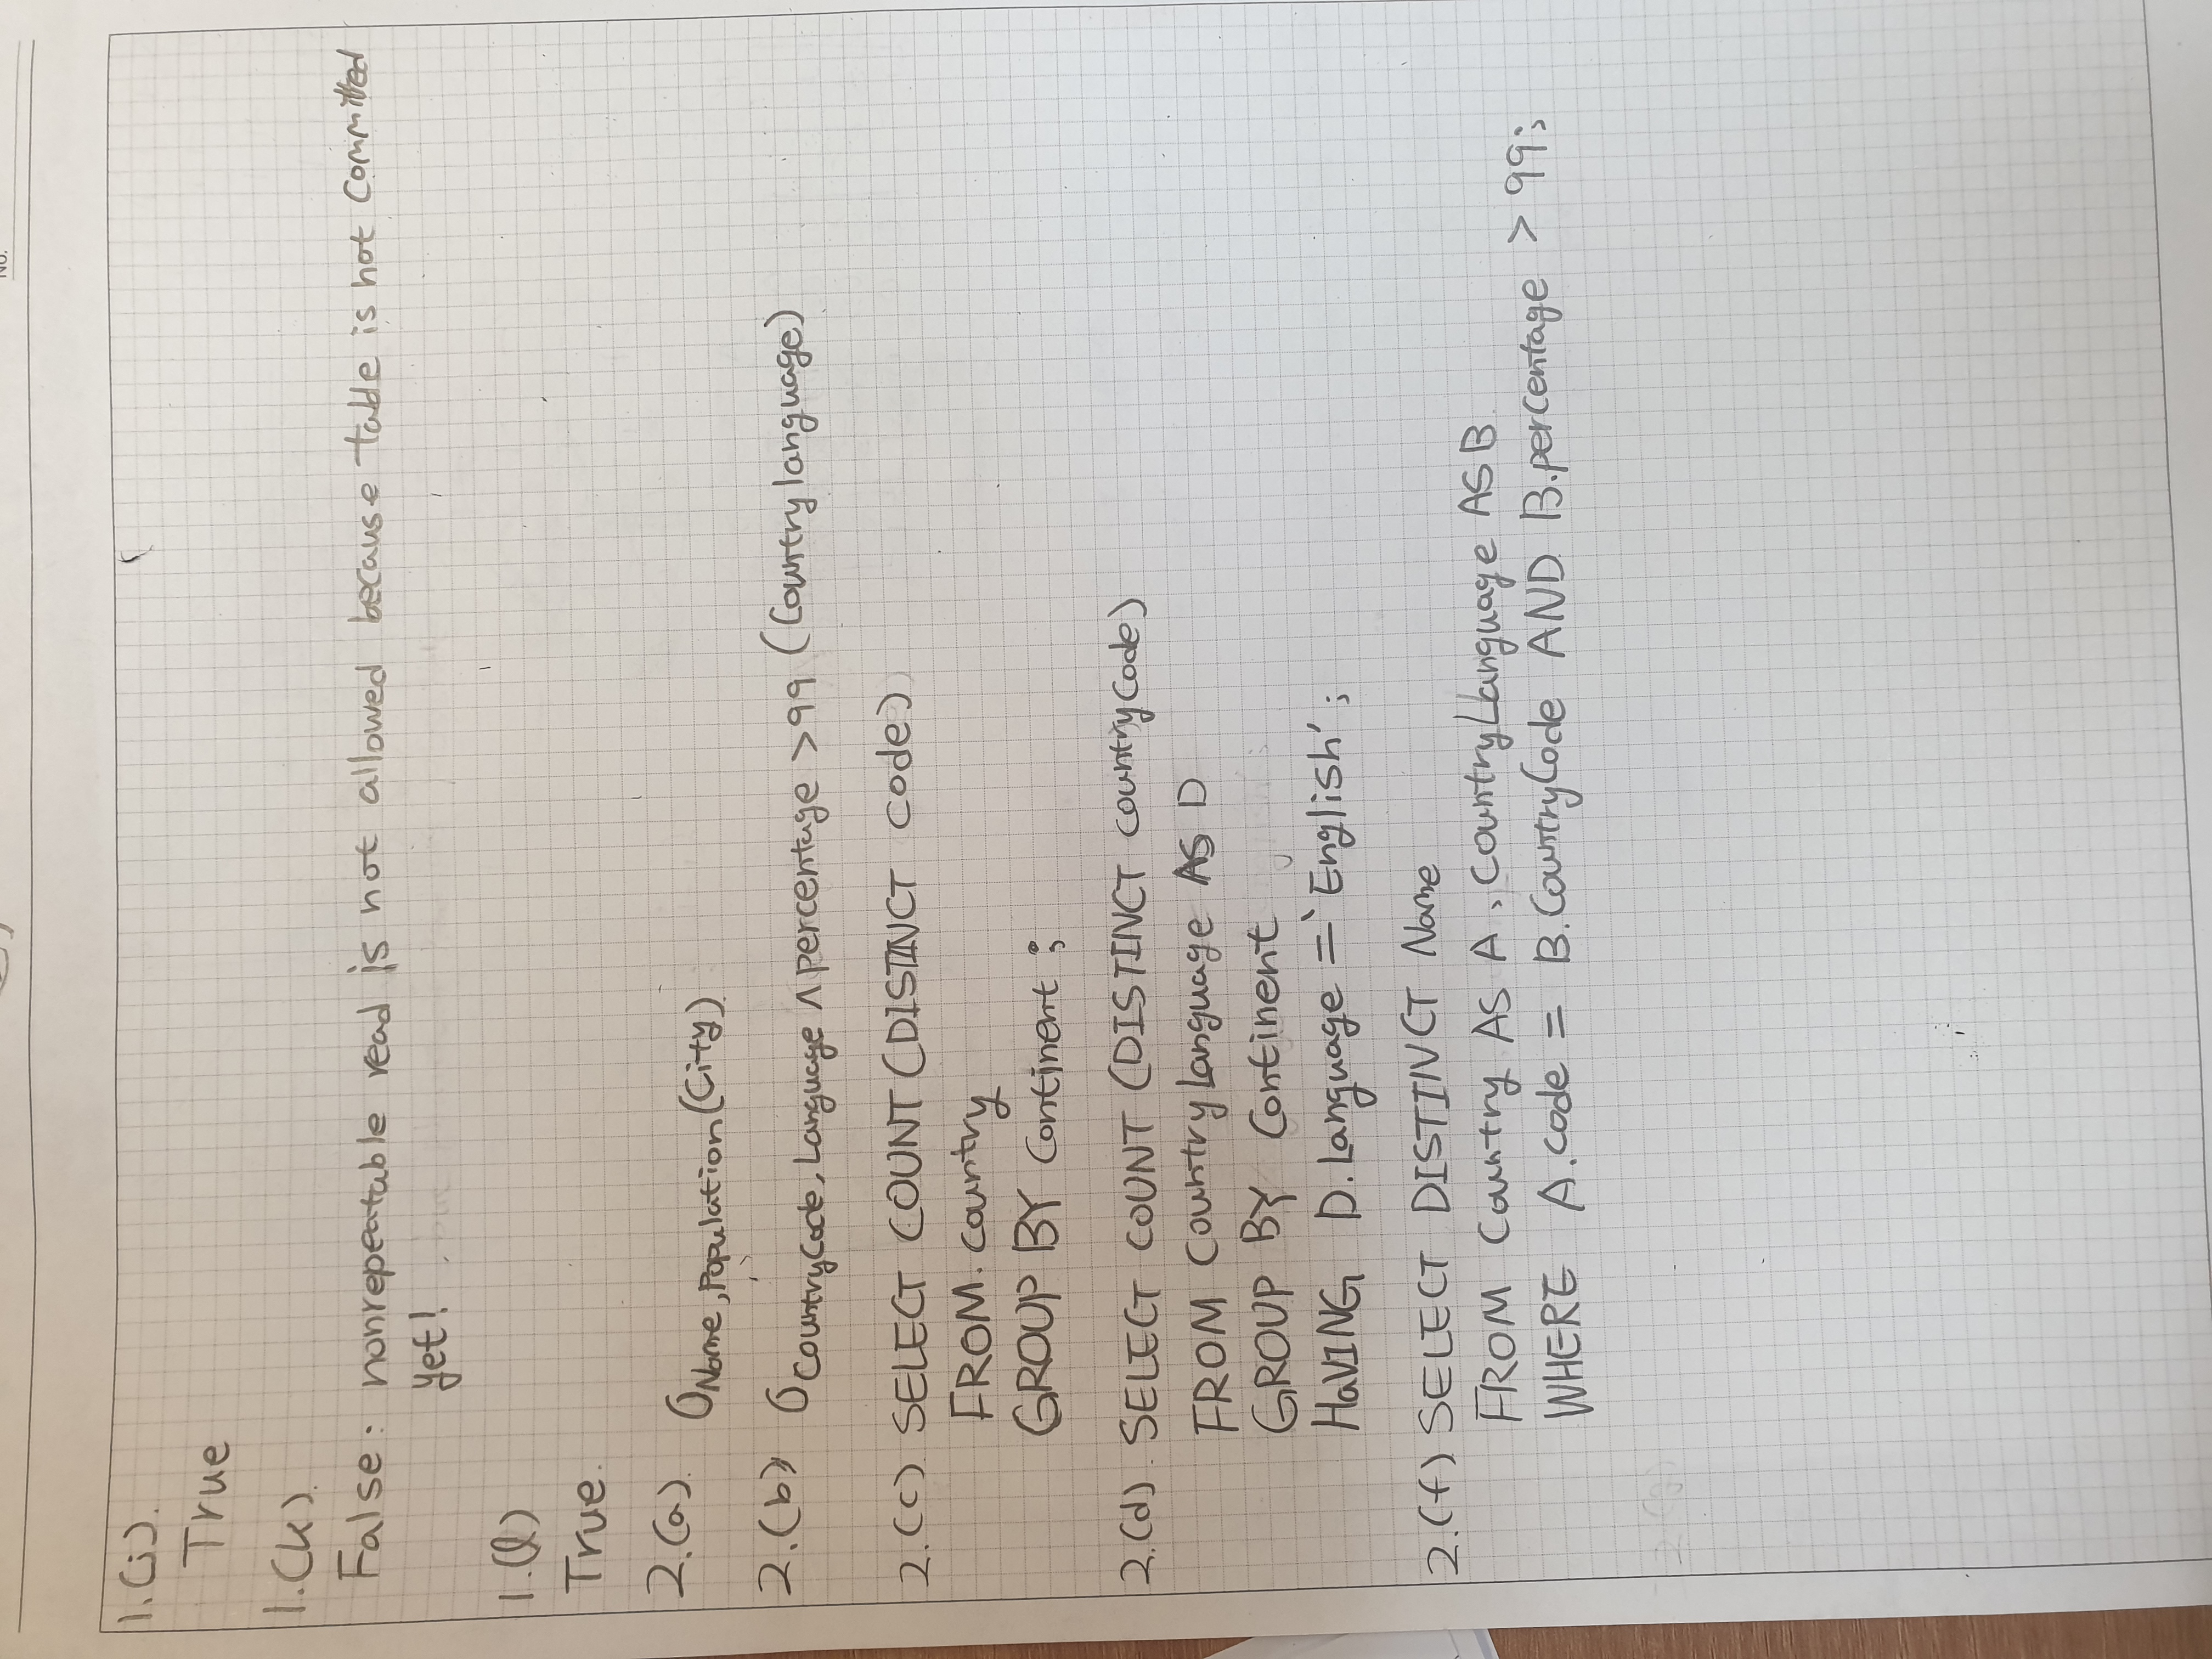 No.
1.(i).
True
1.(k).
False: nonrepeatable read is not allowed because table is not committed
yet!
1.(l)
True.
2.(a). σName,Population(City)
2.(b) σCountryCode, Language ∧ percentage >99 (Countrylanguage)
2.(c) SELECT COUNT(DISTINCT code)
FROM. country
GROUP BY Continent;
2.(d). SELECT COUNT (DISTINCT countryCode)
FROM CountryLanguage AS D
GROUP BY Continent
HaVING D.Language =‘English’;
2.(f) SELECT DISTINCT Name
FROM Country AS A, CountryLanguage AS B
WHERE A.code = B.CountryCode AND B.percentage > 99;